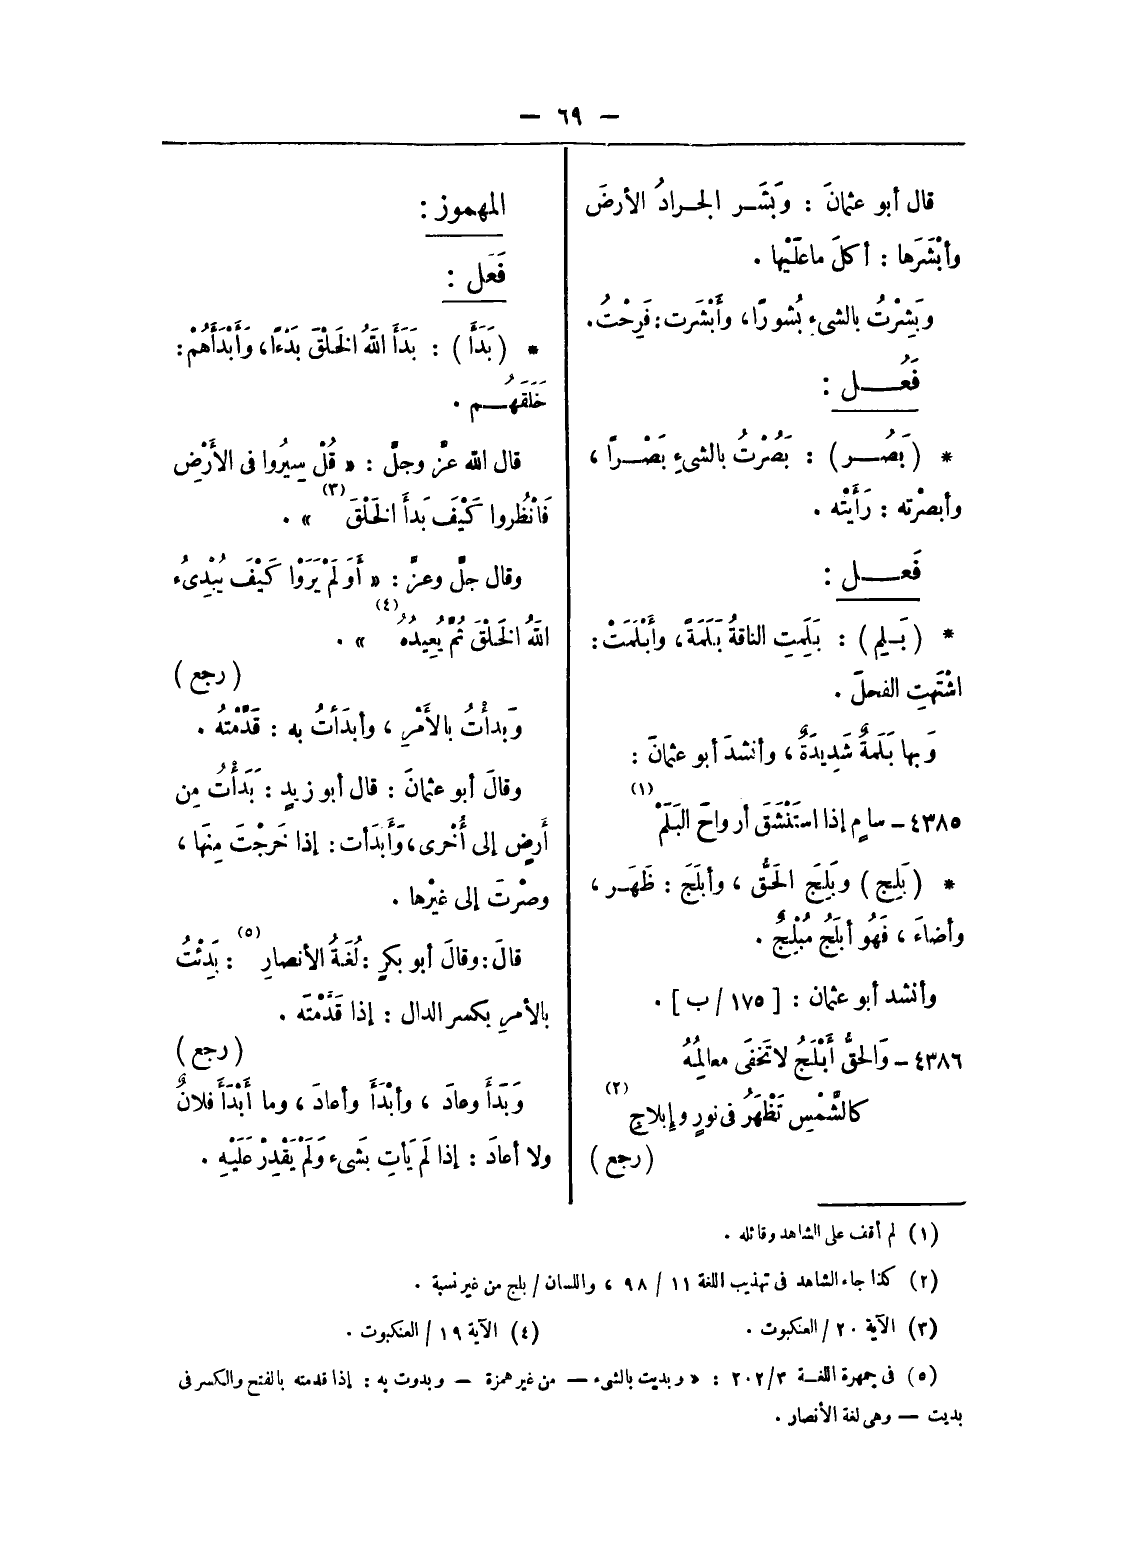 — ٦٩ —
قال أبو عثمانَ : وَبَشَــر الجــرادُ الأرضَ
وأبْشَرَها : أكلَ ماعلَيْها .
وبَشِرْتُ بالشىءِ بُشورًا، وأَبْشَرت: فَرِحْتُ.
فَعُــــل :
* (بَصُــر) : بَصُرْتُ بالشىءِ بَصْــرًا ،
وأبصرْته : رَأَيْته .
فَعــــل :
* (بَــلِم) : بَلِمَتِ الناقةُ بَلَمَةً، وأَبْلَمَتْ:
اشْتَهَتِ الفحلَ .
وَبها بَلَمةٌ شَدِيدَةٌ ، وأنشدَ أبو عثمانَ :
٤٣٨٥ – سامٍ إذا استَنْشَقَ أرواحَ البَلَمْ (١)
* (بَلِج) وبَلِجَ الحَقُّ ، وأبلَجَ : ظَهَــر ،
وأضاءَ ، فَهُو أبلَجُ مُبْلِجٌ .
وأنشد أبو عثمان : [ ١٧٥ / ب ] .
٤٣٨٦ – وَالحقُّ أَبْلَجُ لاتَخفَى معالِمُهُ
كالشَّمْسِ تَظْهَرُ فى نورٍ وإبلاجِ (٢)
(رجع)
المهموز :
فَعَل :
* (بَدَأَ) : بَدَأَ اللهُ الخَلْقَ بَدْءًا، وَأَبْدَأَهُمْ:
خَلَقَهُــم .
قال الله عزّ وجلَّ : « قُلْ سِيرُوا فى الأَرْضِ
فَانْظُروا كَيْفَ بَدأَ الخَلْقَ (٣) » .
وقال جلَّ وعزَّ : « أَوَ لَمْ يَرَوْا كَيْفَ يُبْدِىءُ
اللهُ الخَلْقَ ثُمَّ يُعِيدُهُ (٤) » .
(رجع)
وَبدأْتُ بالأَمْرِ ، وأبدَأتُ به : قَدَّمْتُهُ .
وقالَ أبو عثمانَ : قال أبو زيدٍ : بَدَأْتُ مِن
أَرضٍ إلى أُخْرى، وَأَبدَأت : إذا خَرجْتَ مِنها ،
وصرْتَ إلى غيْرها .
قالَ : وقالَ أبو بكرٍ : لُغَةُ الأنصارِ (٥) : بَدِئْتُ
بالأمرِ بكسر الدال : إذا قَدَّمْتَه .
(رجع)
وَبَدَأ وعادَ ، وأبْدَأَ وأعادَ ، وما أَبْدَأَ فلانٌ
ولا أعادَ : إذا لَم يَأتِ بشَىء وَلَمْ يَقْدِرْ عَلَيْهِ .
(١) لم أقف على الشاهد وقائله .
(٢) كذا جاء الشاهد فى تهذيب اللغة ١١ / ٩٨ ، واللسان / بلج من غير نسبة .
(٣) الآية ٢٠ / العنكبوت . (٤) الآية ١٩ / العنكبوت .
(٥) فى جمهرة اللغــة ٢٠٢/٣ : « وبديت بالشىء — من غير همزة — وبدوت به : إذا قدمته بالفتح والكسر فى
بديت — وهى لغة الأنصار .